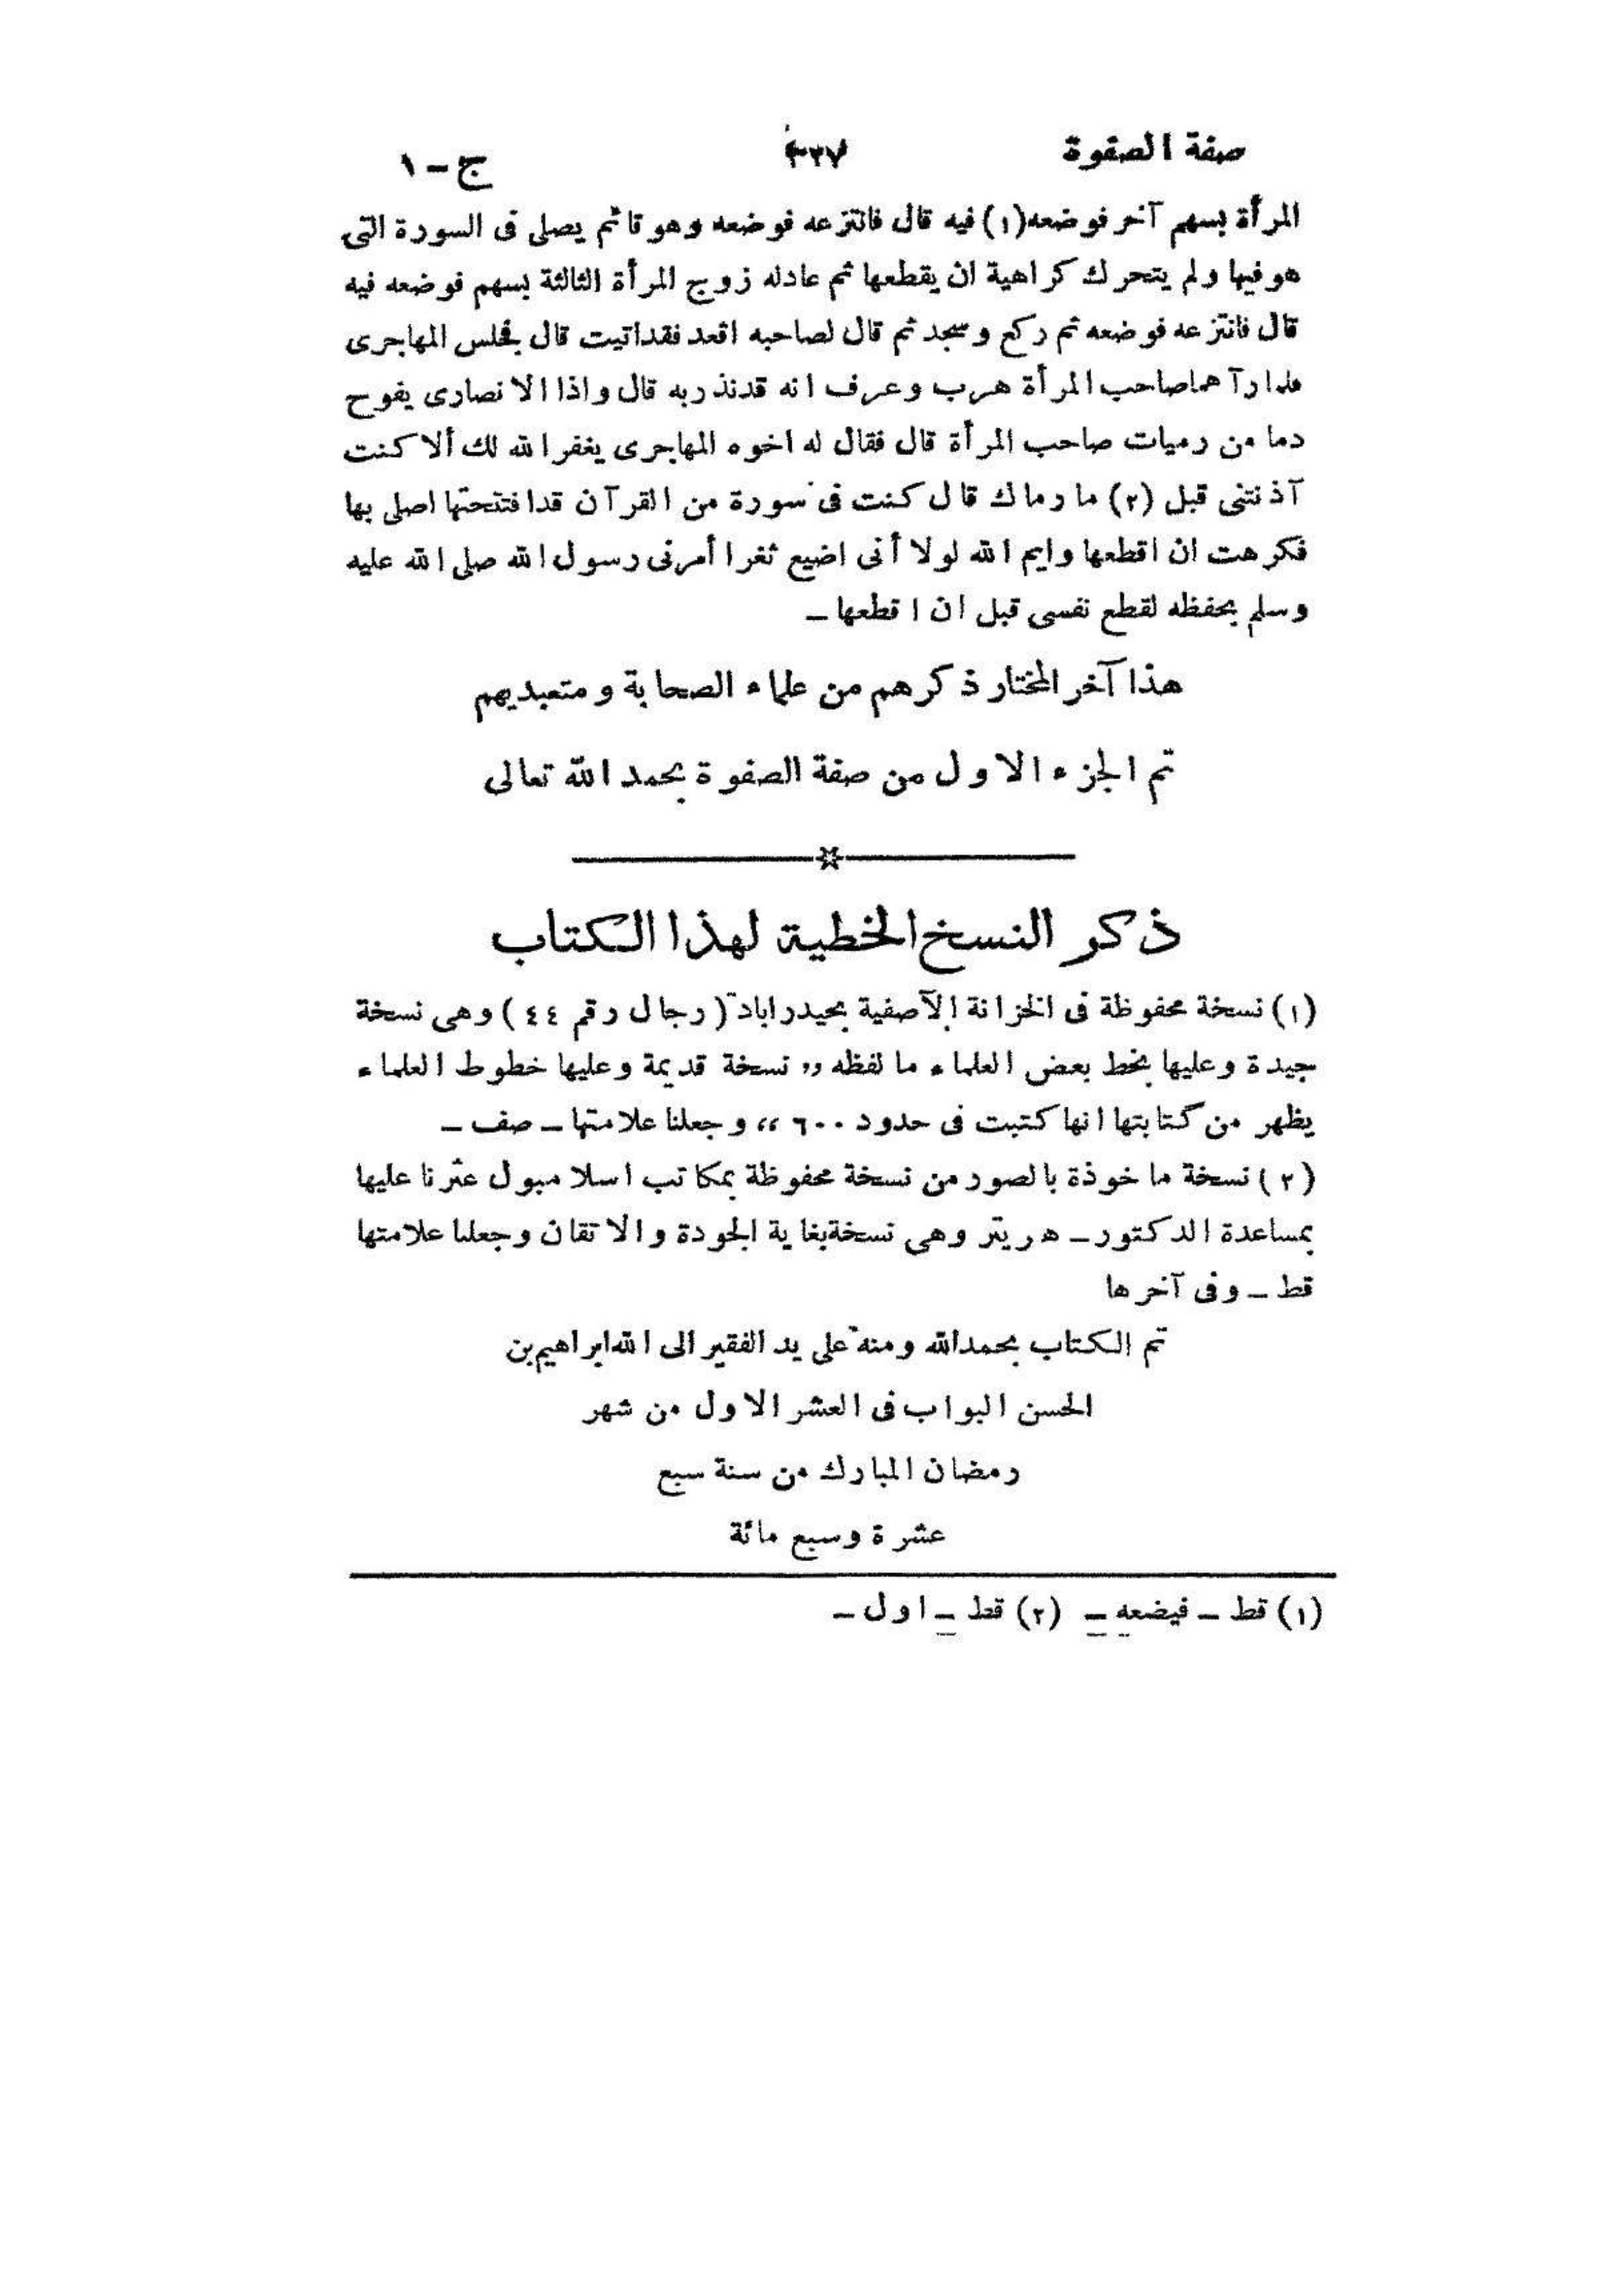 صفة الصفوة ٣٣٧ ج - ١
المرأة بسهم آخر فوضعه(١) فيه قال فانتزعه فوضعه وهو قائم يصلى فى السورة التى
هو فيها ولم يتحرك كراهية ان يقطعها ثم عادله زوج المرأة الثالثة بسهم فوضعه فيه
قال فانتزعه فوضعه ثم ركع وسجد ثم قال لصاحبه اقعد فقد اتيت قال فجلس المهاجرى
فلما رآهما صاحب المرأة هرب وعرف انه قد نذر به قال واذا الانصارى يفوح
دما من رميات صاحب المرأة قال فقال له اخوه المهاجرى يغفر الله لك ألا كنت
آذنتنى قبل (٢) ما رماك قال كنت فى سورة من القرآن قد افتتحتها اصلى بها
فكرهت ان اقطعها وايم الله لولا أنى اضيع ثغرا أمرنى رسول الله صلى الله عليه
وسلم بحفظه لقطع نفسى قبل ان اقطعها ـ
هذا آخر المختار ذكرهم من علماء الصحابة ومتعبديهم
تم الجزء الاول من صفة الصفوة بحمد الله تعالى
ذكر النسخ الخطية لهذا الكتاب
(١) نسخة محفوظة فى الخزانة الآصفية بحيدراباد (رجال رقم ٤٤) وهى نسخة
جيدة وعليها بخط بعض العلماء ما لفظه ,, نسخة قديمة وعليها خطوط العلماء
يظهر من كتابتها انها كتبت فى حدود ٦٠٠ ،، وجعلنا علامتها ـ صف ـ
(٢) نسخة ماخوذة بالصور من نسخة محفوظة بمكاتب اسلامبول عثرنا عليها
بمساعدة الدكتور ـ ه ريتر وهى نسخة بغاية الجودة والاتقان وجعلنا علامتها
قط ـ وفى آخرها
تم الكتاب بحمد الله ومنه على يد الفقير الى الله ابراهيم بن
الحسن البواب فى العشر الاول من شهر
رمضان المبارك من سنة سبع
عشرة وسبع مائة
(١) قط ـ فيضعه ـ (٢) قط ـ اول ـ